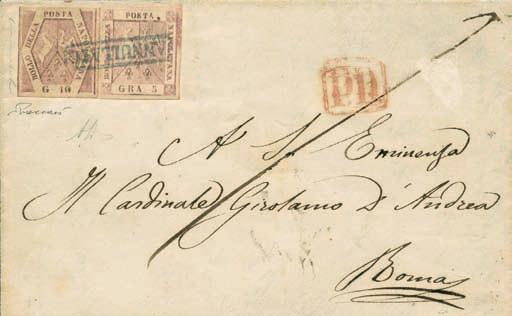 POSTA
BOLLO DELLA
NAPOLETANA
G 10
POSTA
BOLLO DELLA
NAPOLETANA
GRA 5
ANNULLATO
PD
A S. Eminenza
Il Cardinale Girolamo D'Andrea
Roma